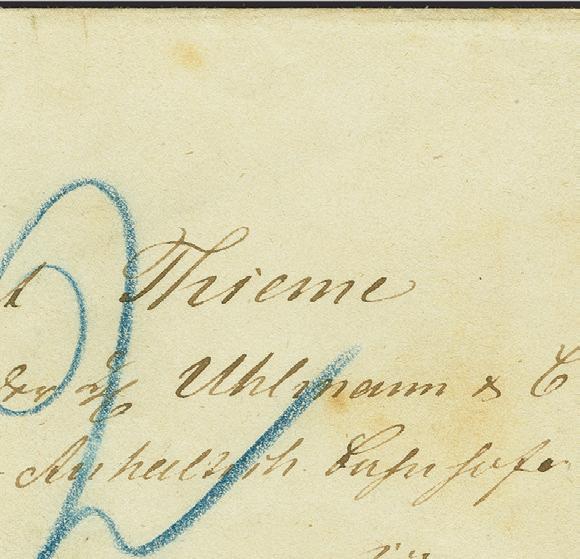 Thieme
Uhlmann & C
Anhaltisch Bahnhofe